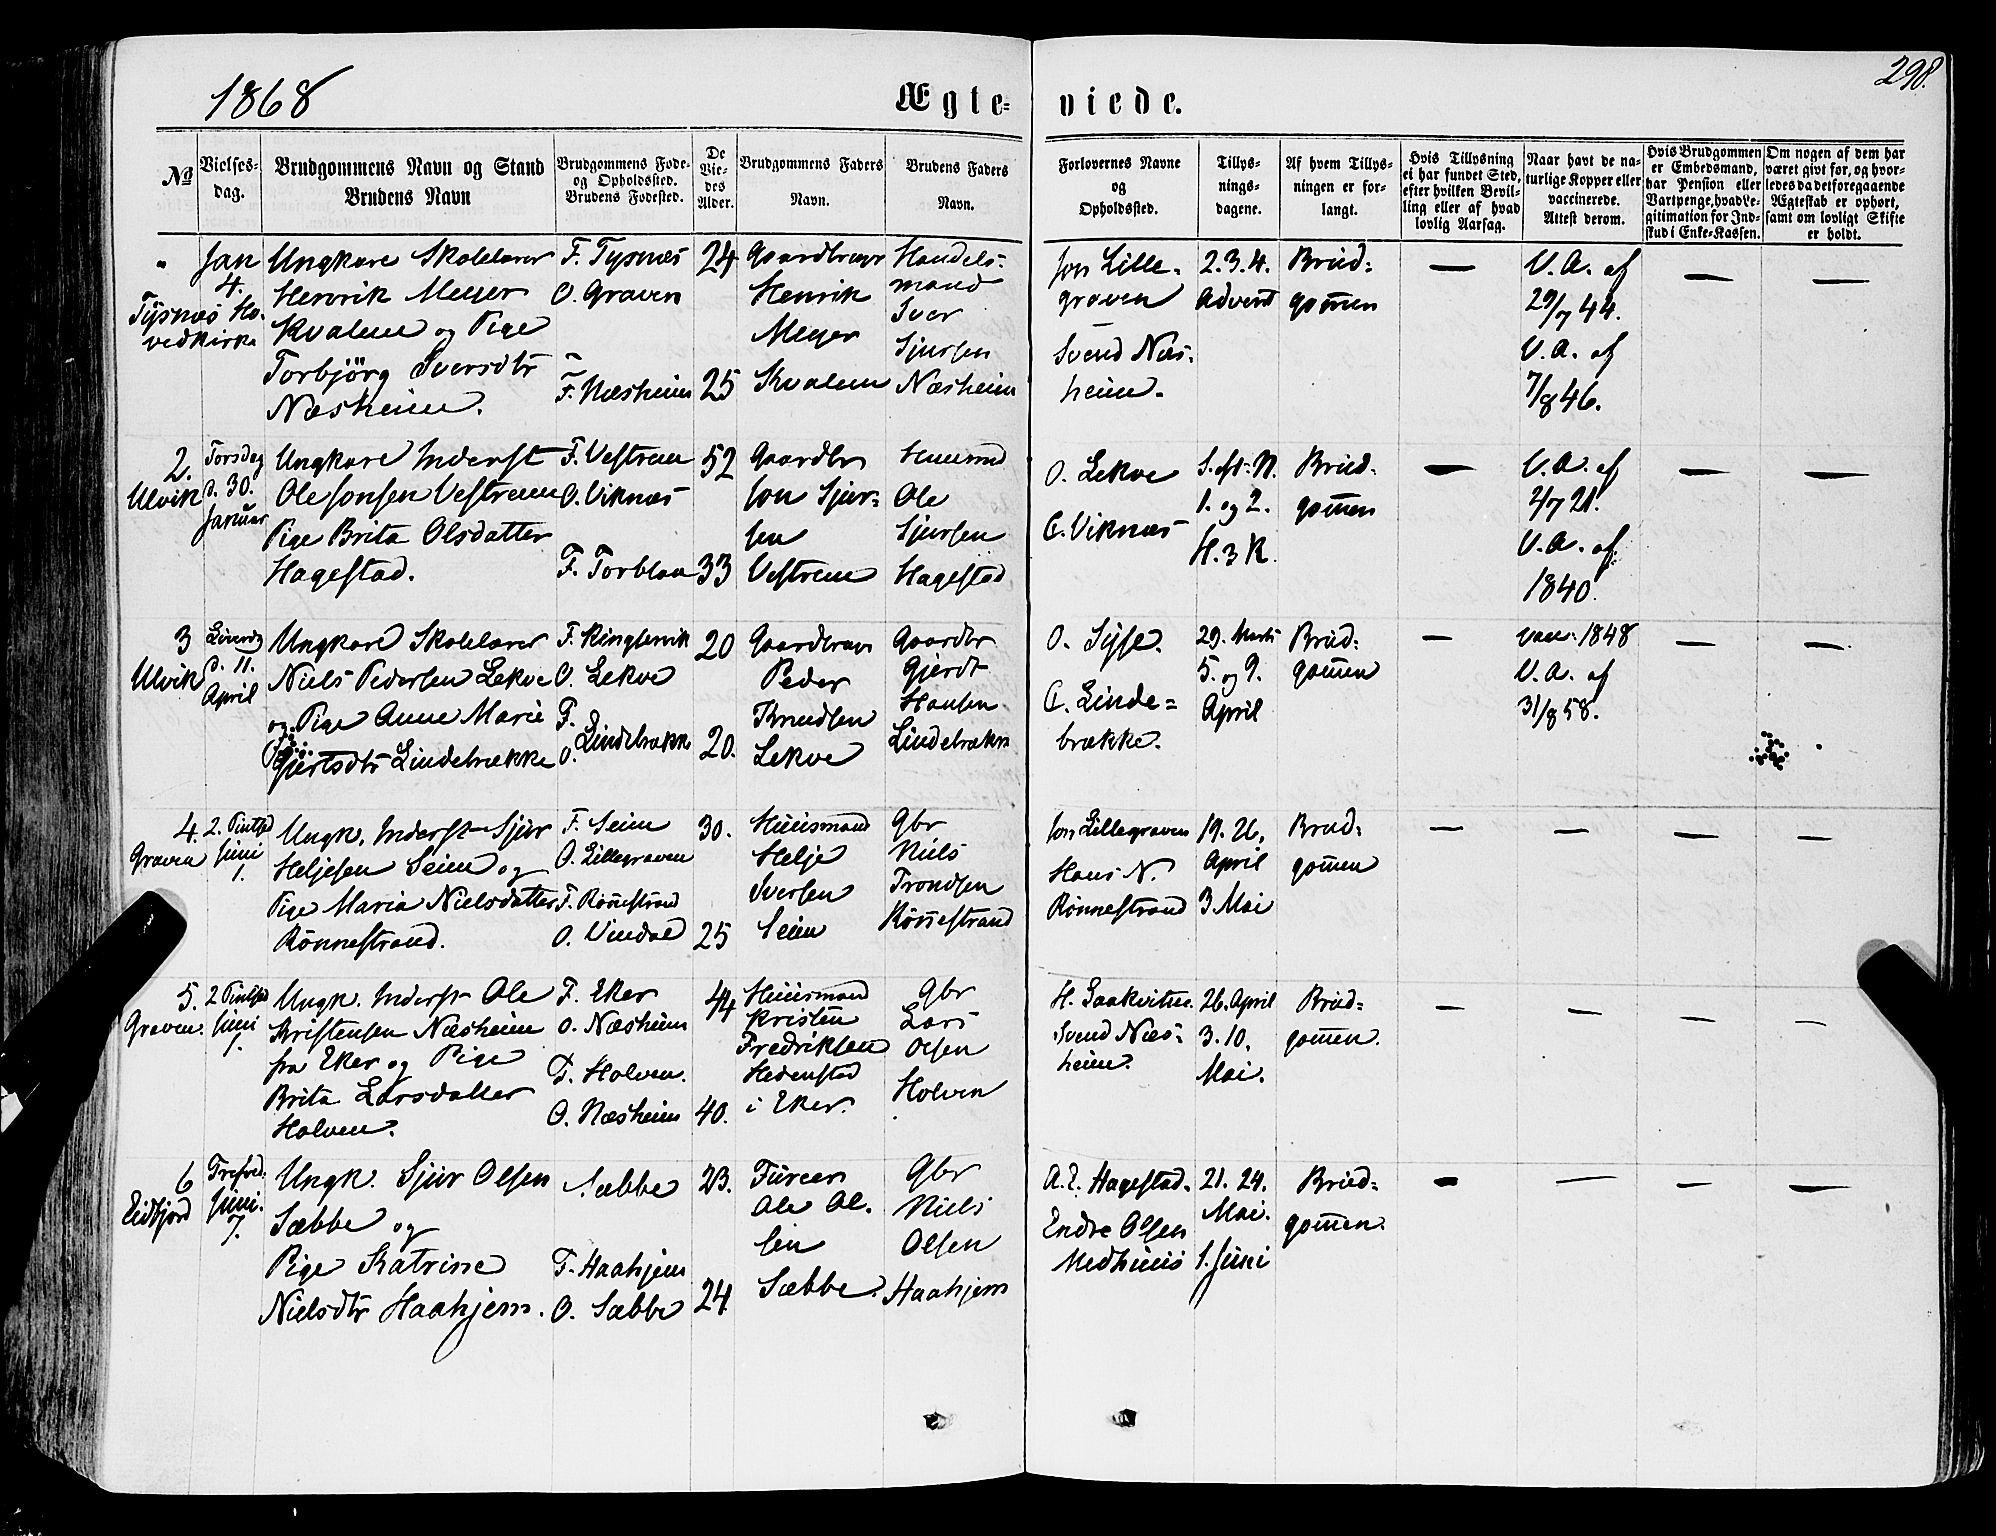 1868
Ægte-
viede.
298.
№
Vielses-
dag.
Brudgommens Navn og Stand
Brudens Navn
Brudgommens Føde-
og Opholdssted.
Brudens Fødested.
De
Vie-
des
Alder.
Brudgommens Faders
Navn.
Brudens Faders
Navn.
Forlovernes Navne
og
Opholdssted.
Tillys-
nings-
dagene.
Af hvem Tillys-
ningen er for-
langt.
Hvis Tillysning
ei har fundet Sted,
efter hvilken Bevil-
ling eller af hvad
lovlig Aarsag.
Naar havt de na-
turlige Kopper eller
vaccinerede.
Attest derom.
Hvis Brudgommen
er Embedsmand,
har Pension eller
Vartpenge, hvad Le-
gitimation for Ind-
skud i Enke-Kassen.
Om nogen af dem har
været givt før, og hvor-
ledes da det foregaaende
Ægteskab er ophørt,
samt om lovligt Skifte
er holdt.
Jan
4.
Tysnæs Ho-
vedkirke
Ungkare Skolelærer
Henrik Meyer
Kvalem og Pige
Torbjörg Iversdtr
Næsheim.
F. Tysnæs
O. Graven
F. Næsheim
24
25
Gaardbruger
Henrik
Meyer
Kvalem
Handels-
mand
Iver
Sjursen
Næsheim
Jon Lille-
graven
Svend Næs-
heim.
2. 3. 4.
Advent
Brud-
gommen
—
V. A. af
29/7 44.
V. A. af
7/8 46.
—
—
2.
Ulvik
Torsdag
d. 30.
Januar
Ungkare Inderst
Ole Jonsen Vestrem
Pige Brita Olsdatter
Hagestad.
F. Vestrem
O. Viknæs
F. Torblaa
52
33
Gaardbr
Jon Sjur-
sen
Vestrem
Huusmd
Ole
Sjursen
Hagestad
O. Lekve
C. Viknæs
S. ft. N.
1. og 2.
H. 3 K.
Brud-
gommen
—
V. A. af
2/7 21.
V. A. af
1840.
—
—
3
Ulvik
Löverdg
d. 11.
April
Ungkare Skolelærer
Niels Pedersen Lekve
og Pige Anne Marie
Gjertsdtr Lindebrække
F. Ringlervik
O. Lekve
F.
O. Lindebrække
20
20.
Gaardbruger
Peder
Knudsen
Lekve
Gaardbr
Gjerdt
Hansen
Lindebrække
O. Syse.
C. Linde-
brække.
29. Marts
5. og 9.
April
Brud-
gommen
—
vacc. 1848
V. A. af
31/8 58.
—
—
4.
Graven
2. Pintsd
Juni
1.
Ungk. Inderst Sjur
Heljesen Seim og
Pige Maria Nielsdatter
Rönnestrand.
F. Seim
O. Lillegraven
F. Rönnestrand
O. Vindal
30.
25
Huusmand
Helje
Iversen
Seim
Gbr
Niels
Trondsen
Rönnestrand
Jon Lillegraven
Hans N.
Rönnestrand
19. 26.
April
3 Mai
Brud-
gommen
—
—
—
—
5.
Graven.
2 Pintsd
Juni
1.
Ungk. Inderst Ole
Kristensen Næsheim
fra Eker og Pige
Brita Larsdatter
Holven.
F. Eker
O. Næsheim
F. Holven.
O. Næsheim
44
40.
Huusmand
Kristen
Fredriksen
Hedenstad
i Eker.
Gbr
Lars
Olsen
Holven
H. Saakvitne.
Svend Næs-
heim.
26. April
3. 10.
Mai.
Brud-
gommen.
—
—
—
—
6
Eidfjord
Trefred.
Juni.
7.
Ungk. Sjur Olsen
Sæbbe og
Pige Katrine
Nielsdtr Haahjem.
Sæbbe
F. Haahjem
O. Sæbbe
23.
24
Fureer
Ole Ol-
sen
Sæbbe.
Gbr
Niels
Olsen
Haahjem
A. E. Hagestad.
Endre Olsen
Medhuus
21. 24.
Mai.
1. Juni
Brud-
gommen.
—
—
—
—